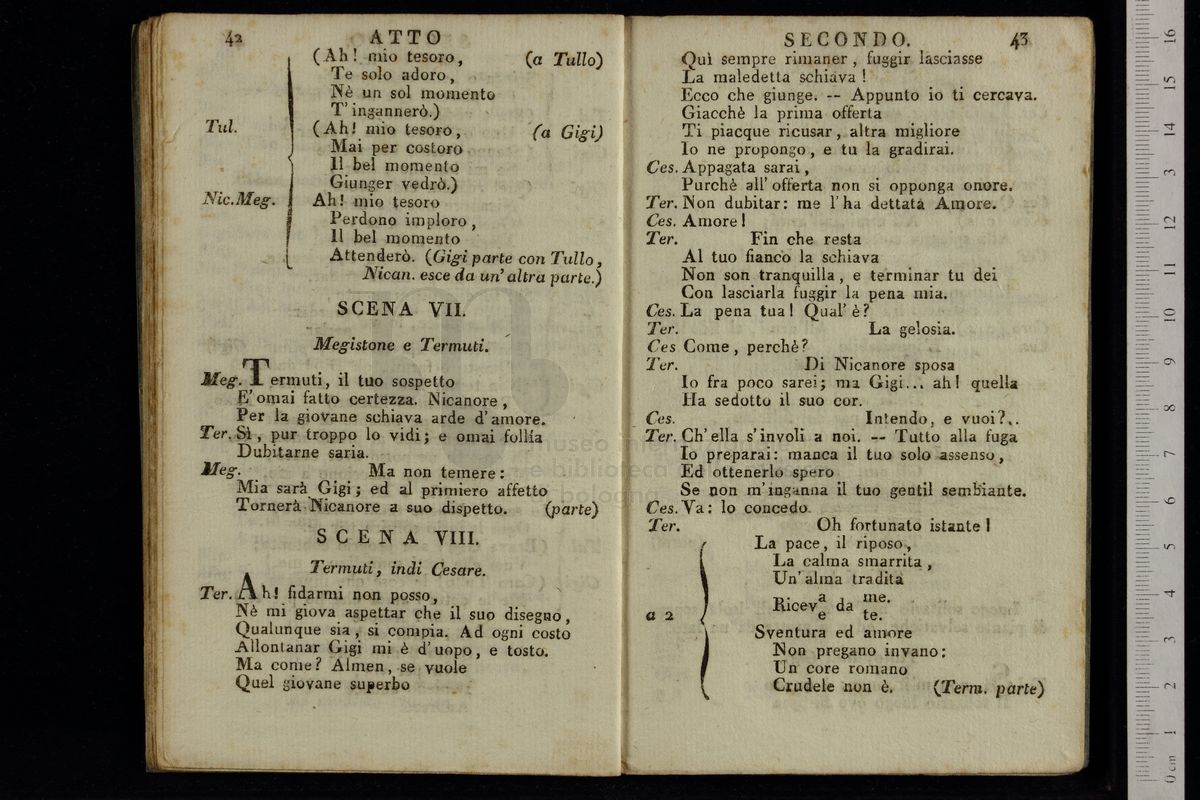 42 ATTO
(Ah! mio tesoro, (a Tullo)
Te solo adoro,
Nè un sol momento
T'ingannerò.)
Tul. (Ah! mio tesoro, (a Gigi)
Mai per costoro
Il bel momento
Giunger vedrò.)
Nic. Meg. Ah! mio tesoro
Perdono imploro,
Il bel momento
Attenderò. (Gigi parte con Tullo,
Nican. esce da un' altra parte.)
SCENA VII.
Megistone e Termuti.
Meg. Termuti, il tuo sospetto
E' omai fatto certezza. Nicanore,
Per la giovane schiava arde d'amore.
Ter. Sì, pur troppo lo vidi; e omai follía
Dubitarne saria.
Meg. Ma non temere:
Mia sarà Gigi; ed al primiero affetto
Tornerà Nicanore a suo dispetto. (parte)
SCENA VIII.
Termuti, indi Cesare.
Ter. Ah! fidarmi non posso,
Nè mi giova aspettar che il suo disegno,
Qualunque sia, si compia. Ad ogni costo
Allontanar Gigi mi è d'uopo, e tosto.
Ma come? Almen, se vuole
Quel giovane superbo
SECONDO. 43
Quì sempre rimaner, fuggir lasciasse
La maledetta schiava!
Ecco che giunge. -- Appunto io ti cercava.
Giacchè la prima offerta
Ti piacque ricusar, altra migliore
Io ne propongo, e tu la gradirai.
Ces. Appagata sarai,
Purchè all'offerta non si opponga onore.
Ter. Non dubitar: me l'ha dettata Amore.
Ces. Amore!
Ter. Fin che resta
Al tuo fianco la schiava
Non son tranquilla, e terminar tu dei
Con lasciarla fuggir la pena mia.
Ces. La pena tua! Qual' è?
Ter. La gelosia.
Ces Come, perchè?
Ter. Di Nicanore sposa
Io fra poco sarei; ma Gigi... ah! quella
Ha sedotto il suo cor.
Ces. Intendo, e vuoi?..
Ter. Ch'ella s'involi a noi. -- Tutto alla fuga
Io preparai: manca il tuo solo assenso,
Ed ottenerlo spero
Se non m'inganna il tuo gentil sembiante.
Ces. Va: lo concedo.
Ter. Oh fortunato istante!
La pace, il riposo,
La calma smarrita,
Un'alma tradita
a me.
a 2 Ricev da
e te.
Sventura ed amore
Non pregano invano:
Un core romano
Crudele non è. (Term. parte)